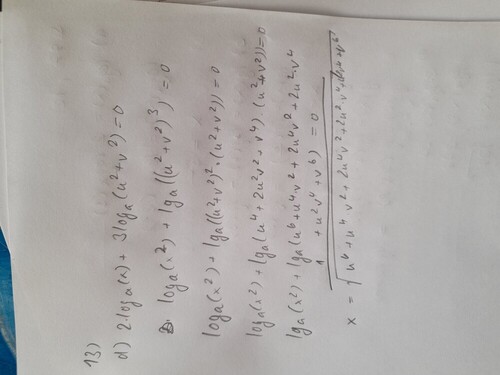 13)
d) 2·loga(x) + 3loga(u²+v²) = 0
loga(x²) + lga((u²+v²)³) = 0
loga(x²) + lga((u²+v²)²·(u²+v²)) = 0
loga(x²) + lga(u⁴+2u²v²+v⁴)·(u²+v²)) = 0
lga(x²) + lga(u⁶+u⁴·v²+2u⁴v²+2u²·v⁴
+u²v⁴+v⁶) = 0
x = √u⁶+u⁴·v²+2u⁴v²+2u²·v⁴